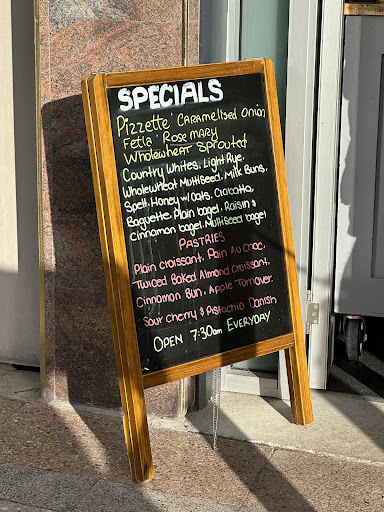 SPECIALS
Pizzette' Caramelised onion
Fetta' Rosemary
Wholewheat Sprouted
Country Whites, Light Rye,
Wholewheat Multiseed, Milk Buns,
Spelt, Honey w/ Oats, Ciabatta,
Baguette, Plain bagel, Raisin &
cinnamon bagel, Multiseed bagel
PASTRIES
Plain croissant, Pain Au Choc,
Twiced Baked Almond croissant,
Cinnamon Bun, Apple Turnover.
Sour cherry & Pistachio Danish
OPEN 7:30am EVERYDAY